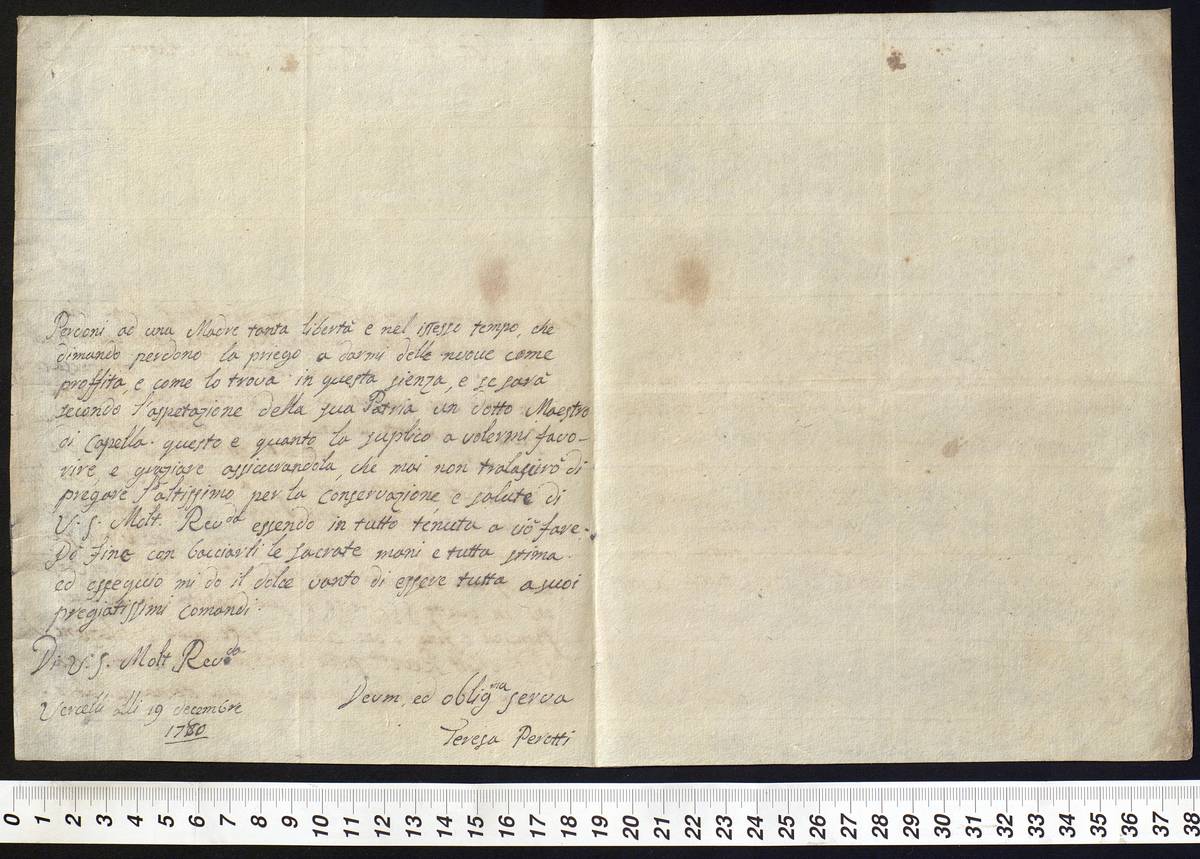 Perdoni ad una Madre tanta libertà e nel istesso tempo, che
dimando perdono la priego a darmi delle nuove come
proffita, e come lo trova in questa sienza, e se sarà
secondo l'aspetazione della sua Patria un dotto Maestro
di Capella. questo e quanto la suplico a volermi favo-
rire, e graziare assicurandola, che mai non tralasierò di
pregare l'altissimo per la Conservazione, e salute di
V. S. Molt. Revda essendo in tutto tenuta a ciò fare.
Do fine con bacciarli le sacrate mani e tutta stima
ed osseguio mi do il dolce vanto di essere tutta a suoi
pregiatissimi comandi.
Di V. S. Molt Revda
Vercelli alli 19 decembre
1780
Devm, ed obligma serva
Teresa Perotti
0 1 2 3 4 5 6 7 8 9 10 11 12 13 14 15 16 17 18 19 20 21 22 23 24 25 26 27 28 29 30 31 32 33 34 35 36 37 38